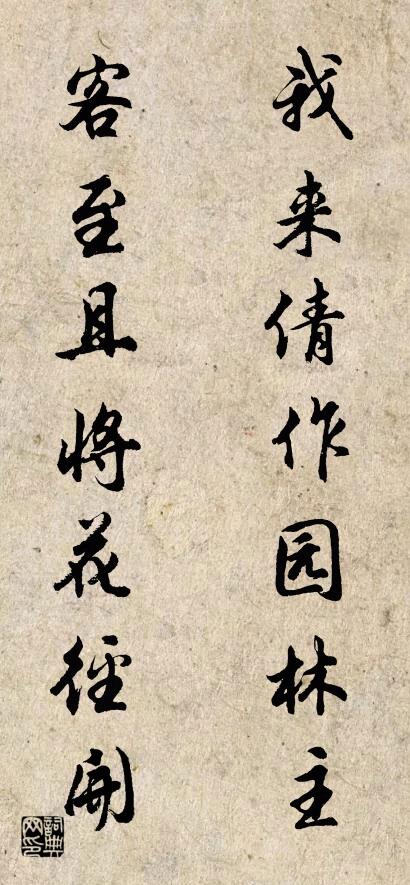 我来倩作园林主
客至且将花徑開
詞典网印